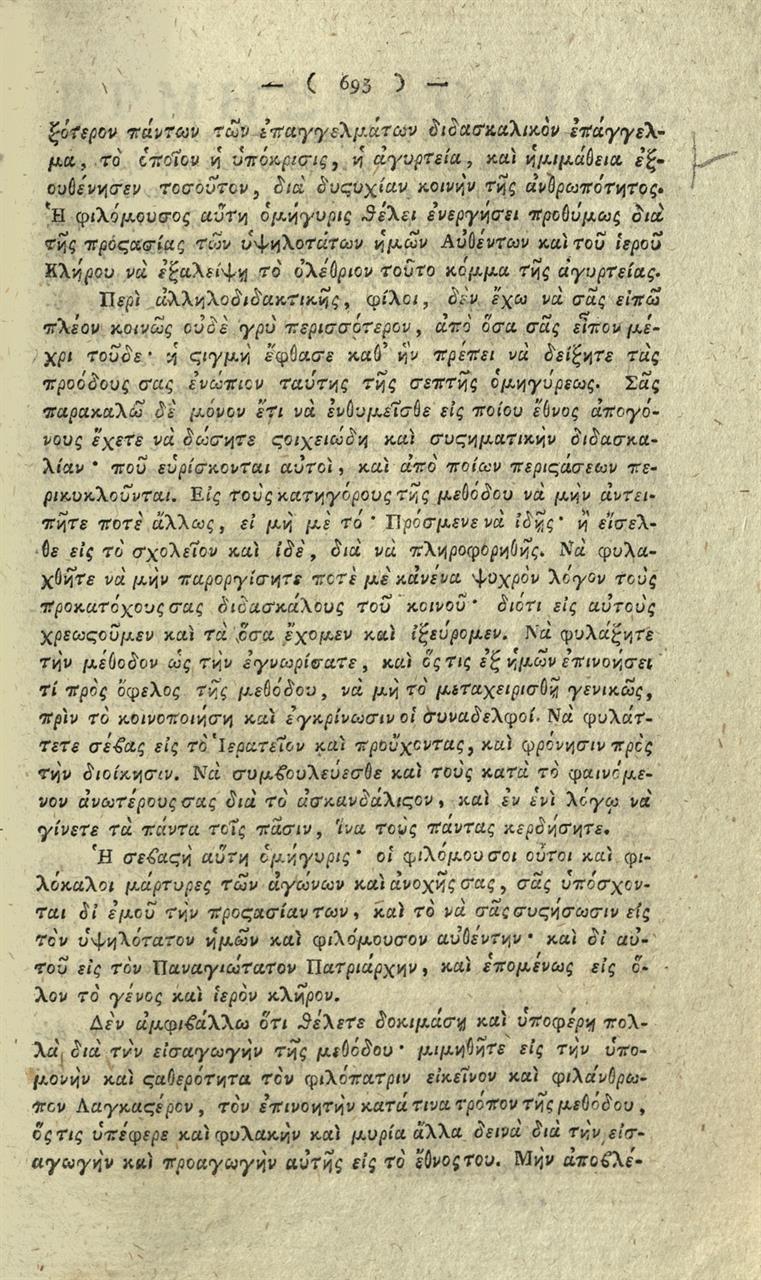 — ( 693 ) —
ξότερον πάντων τῶν ἐπαγγελμάτων διδασκαλικὸν ἐπάγγελ-
μα, τὸ ὁποῖον ἡ ὑπόκρισις, ἡ ἀγυρτεία, καὶ ἡμιμάθεια ἐξ-
ουθένησεν τοσοῦτον, διὰ δυςυχίαν κοινὴν τῆς ἀνθρωπότητος.
Ἡ φιλόμουσος αὕτη ὁμήγυρις θέλει ἐνεργήσει προθύμως διὰ
τῆς πρόςασίας τῶν ὑψηλοτάτων ἡμῶν Αὐθέντων καὶ τοῦ ἱεροῦ
Κλήρου νὰ ἐξαλείψῃ τὸ ὀλέθριον τοῦτο κόμμα τῆς ἀγυρτείας.
Περὶ ἀλληλοδιδακτικῆς, φίλοι, δὲν ἔχω νὰ σᾶς εἰπῶ
πλέον κοινῶς οὐδὲ γρὺ περισσότερον, ἀπὸ ὅσα σᾶς εἶπον μέ-
χρι τοῦδε· ἡ ςιγμὴ ἔφθασε καθ' ἣν πρέπει νὰ δείξητε τὰς
προόδους σας ἐνώπιον ταύτης τῆς σεπτῆς ὁμηγύρεως. Σᾶς
παρακαλῶ δὲ μόνον ἔτι νὰ ἐνθυμεῖσθε εἰς ποίου ἔθνος ἀπογό-
νους ἔχετε νὰ δώσητε ςοιχειώδη καὶ συςηματικὴν διδασκα-
λίαν· ποῦ εὑρίσκονται αὐτοὶ, καὶ ἀπὸ ποίων περιςάσεων πε-
ρικυκλοῦνται. Εἰς τοὺς κατηγόρους τῆς μεθόδου νὰ μὴν ἀντει-
πῆτε ποτὲ ἄλλως, εἰ μὴ μὲ τό· Πρόσμενε νὰ ἰδῇς· ἢ εἴσελ-
θε εἰς τὸ σχολεῖον καὶ ἰδὲ, διὰ νὰ πληροφορηθῇς. Νὰ φυλα-
χθῆτε νὰ μὴν παροργίσητε ποτὲ μὲ κᾀνένα ψυχρὸν λόγον τοὺς
προκατόχους σας διδασκάλους τοῦ κοινοῦ· διότι εἰς αὐτοὺς
χρεωςοῦμεν καὶ τὰ ὅσα ἔχομεν καὶ ἰξεύρομεν. Νὰ φυλάξητε
τὴν μέθοδον ὡς τὴν ἐγνωρίσατε, καὶ ὅς τις ἐξ ἡμῶν ἐπινοήσει
τὶ πρὸς ὄφελος τῆς μεθόδου, νὰ μὴ τὸ μεταχειρισθῇ γενικῶς,
πρὶν τὸ κοινοποιήσῃ καὶ ἐγκρίνωσιν οἱ συναδελφοί. Νὰ φυλάτ-
τετε σέβας εἰς τὸ Ἱερατεῖον καὶ προὔχοντας, καὶ φρόνησιν πρὸς
τὴν διοίκησιν. Νὰ συμβουλεύεσθε καὶ τοὺς κατὰ τὸ φαινόμε-
νον ἀνωτέρους σας διὰ τὸ ἀσκανδάλιςον, καὶ ἐν ἑνὶ λόγῳ νὰ
γίνετε τὰ πάντα τοῖς πᾶσιν, ἵνα τοὺς πάντας κερδήσητε.
Ἡ σεβαςὴ αὕτη ὁμήγυρις· οἱ φιλόμουσοι οὗτοι καὶ φι-
λόκαλοι μάρτυρες τῶν ἀγώνων καὶ ἀνοχῆς σας, σᾶς ὑπόσχον-
ται δι' ἐμοῦ τὴν προςασίαν των, καὶ τὸ νὰ σᾶς συςήσωσιν εἰς
τὸν ὑψηλότατον ἡμῶν καὶ φιλόμουσον αὐθέντην· καὶ δι' αὐ-
τοῦ εἰς τὸν Παναγιώτατον Πατριάρχην, καὶ ἑπομένως εἰς ὅ-
λον τὸ γένος καὶ ἱερὸν κλῆρον.
Δὲν ἀμφιβάλλω ὅτι θέλετε δοκιμάσῃ καὶ ὑποφέρῃ πολ-
λὰ διὰ τὴν εἰσαγωγὴν τῆς μεθόδου· μιμηθῆτε εἰς τὴν ὑπο-
μονὴν καὶ ςαθερότητα τὸν φιλόπατριν εἰκεῖνον καὶ φιλάνθρω-
πον Λαγκαςέρον, τὸν ἐπινοητὴν κατά τινα τρόπον τῆς μεθόδου,
ὅς τις ὑπέφερε καὶ φυλακὴν καὶ μυρία ἄλλα δεινὰ διὰ τὴν εἰσ-
αγωγὴν καὶ προαγωγὴν αὐτῆς εἰς τὸ ἔθνος του. Μὴν ἀποβλέ-